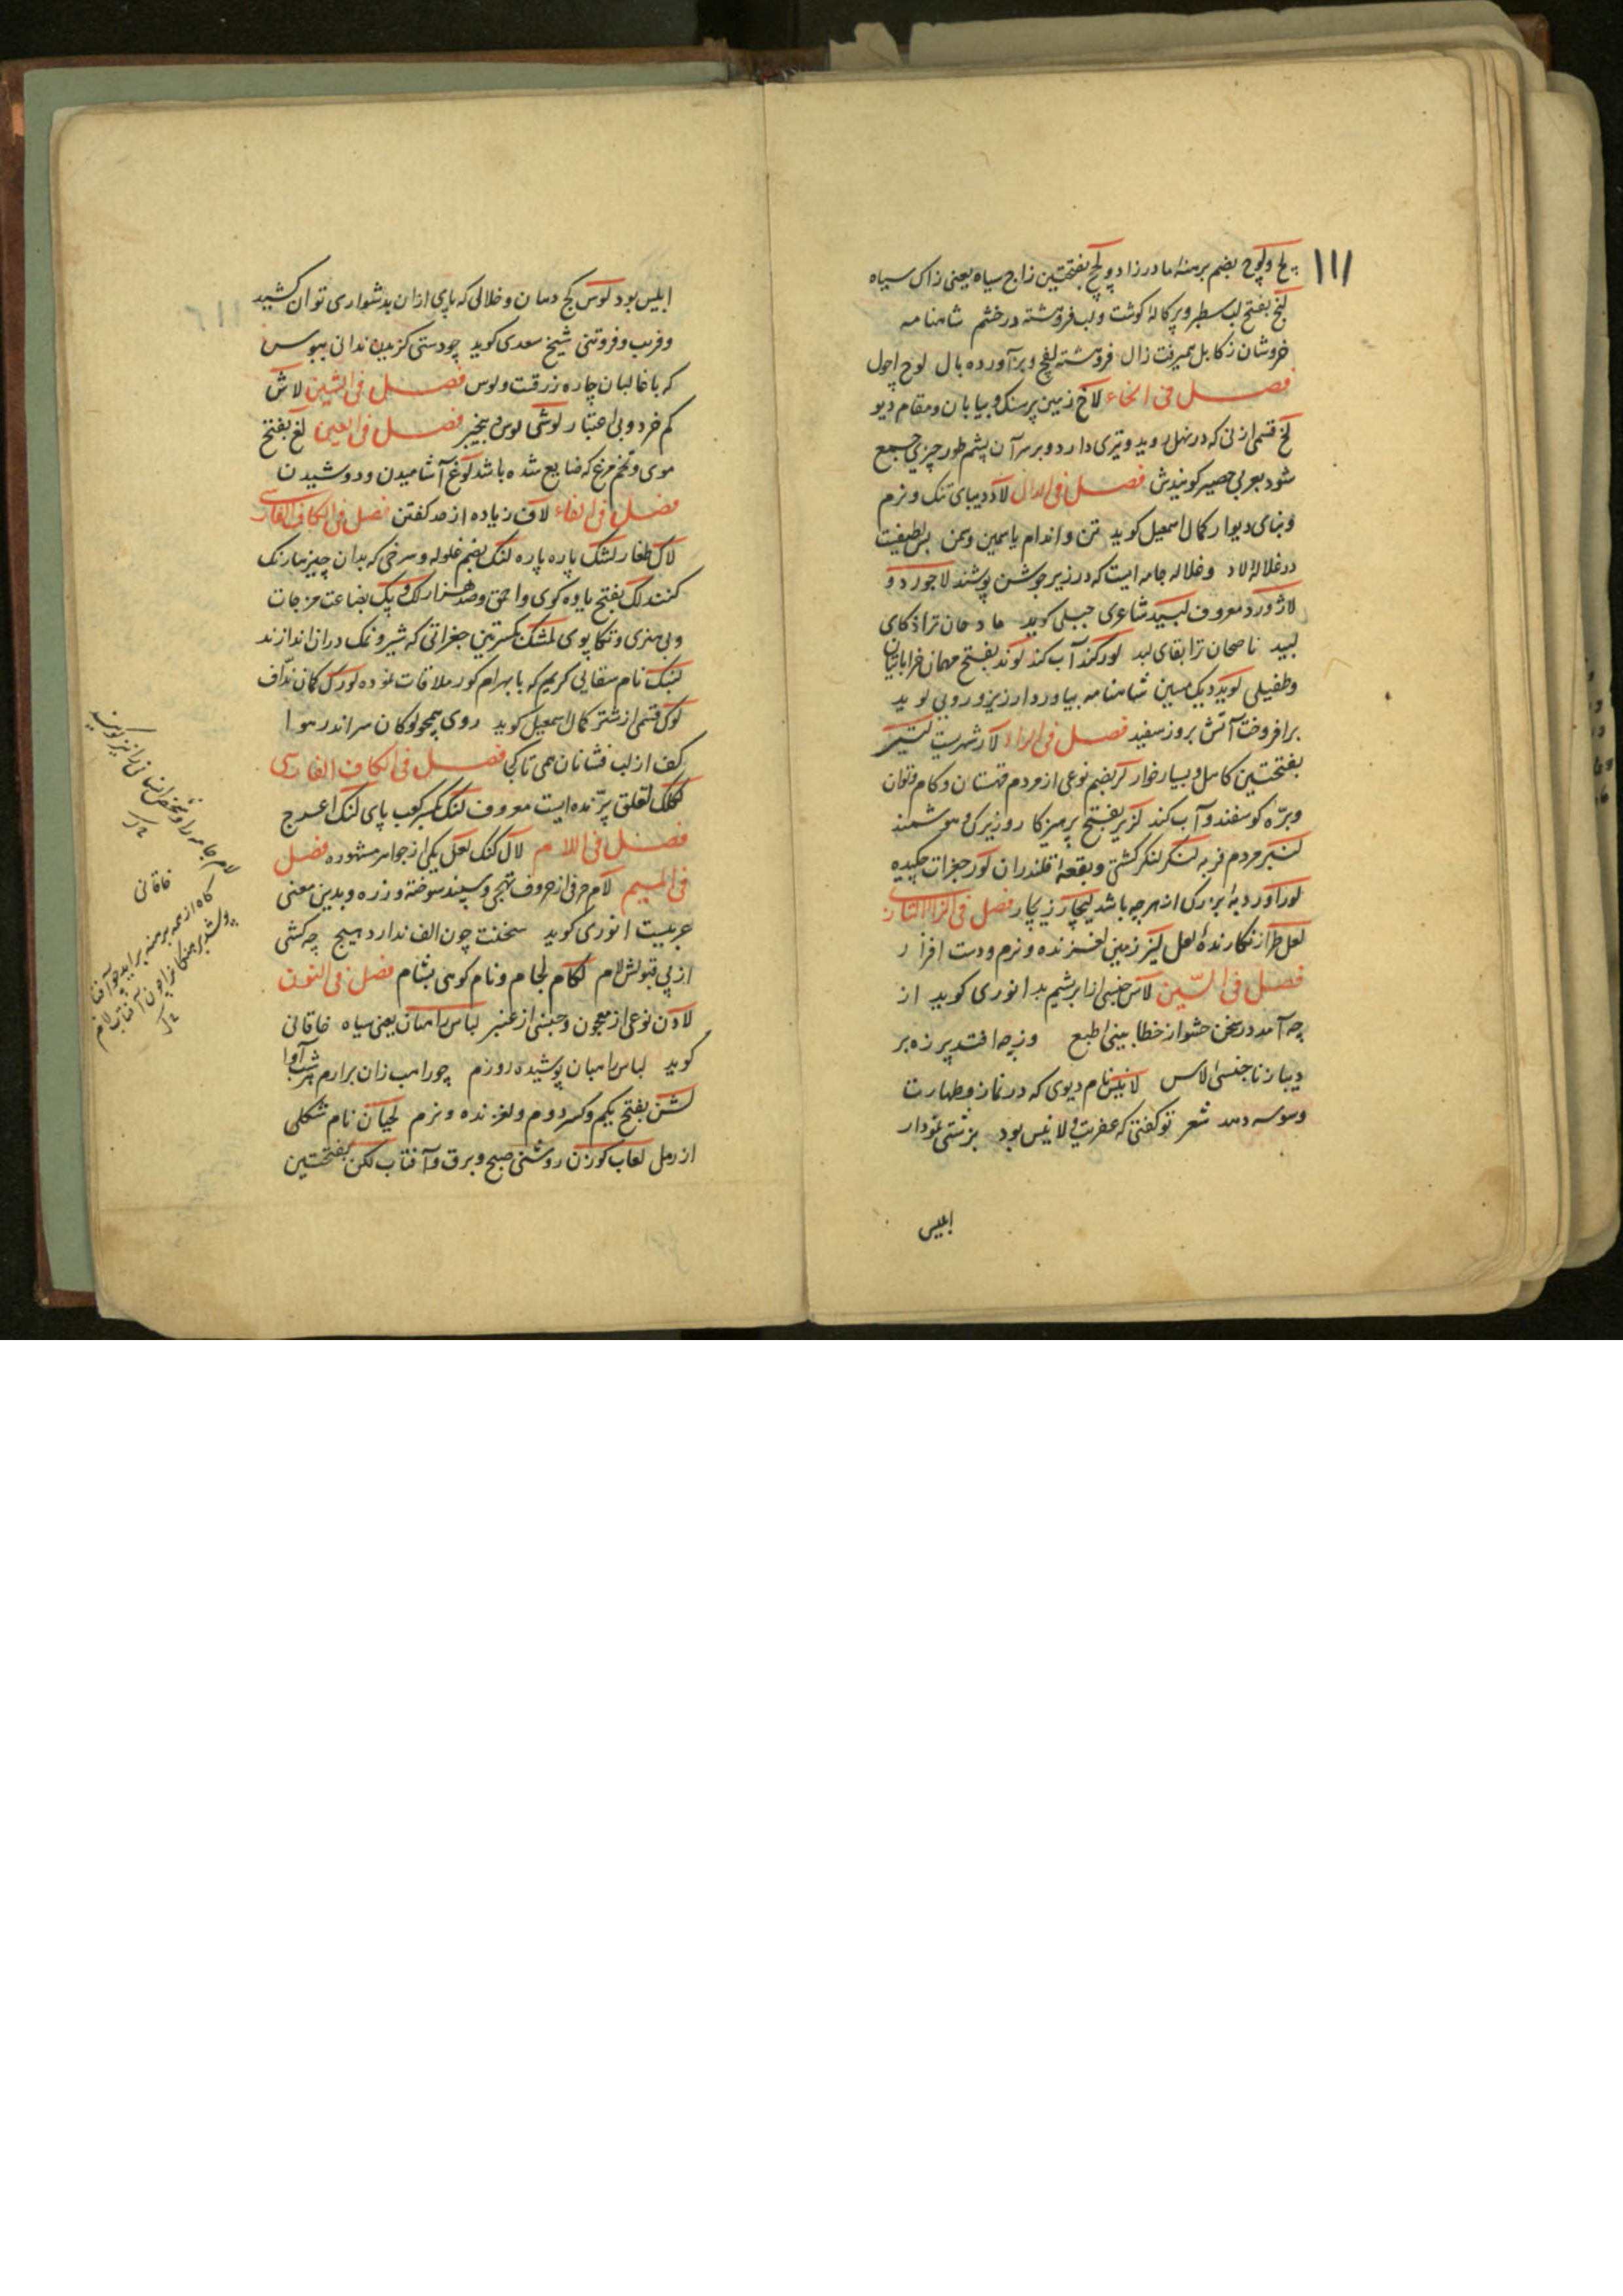 ۱۱۱
لج و لوچ بضم برهنهٔ مادرزاد و لج بفتحتین زاج سیاه یعنی زاک سیاه
لنج بفتح لب سطبر و پرکالهٔ کوشت و لب فروهشته در خشم شاهنامه
خروشان ز کابل همیرفت زال فروهشته لفج و برآورده یال لوچ احول
فصل فی الخاء لاخ زمین پرسنک و بیابان و مقام دیو
لخ قسمی از نی که در نهل روید و تیزی دارد و بر سر آن پشم طور چیزی جمع
شود بعربی حصیر کویندش فصل فی الدال لاد دیبای تنک و نرم
و بنای دیوار کمال اسمعیل کوید تن و اندام یاسمین و سمن بس لطیفست
در غلالهٔ لاد و غلاله جامه ایست که در زیر جوشن پوشند لاجورد و
لاژورد معروف لبید شاعری جبلی کوید مادحان ترا ذکای
لبید ناصحان ترا بقای لبد لورکند آب کند لوند بفتح مهمان خراباتیان
و طفیلی لوید دیک مسین شاهنامه بیاورد ارزیز و رویین لوید
برافروخت آتش بروز سفید فصل فی الراء لار شهریست لتنبر
بفتحتین کاهل و بسیارخوار لر بضم نوعی از مردم قهستان و کام و توان
و برّه کوسفند و آب کند لزیر بفتح پرهیزکار و زیرک و هوشمند
لنبر مردم فربه لنکر لنکر کشتی و بقعهٔ قلندران لور جغرات چکیده
لوراور دبهٔ بزرک از هر چه باشد لیچار ریچار فصل فی الزاء التازی
لعل طراز نکارندهٔ لعل لیز زمین لغزنده و نرم و دست افزار
فصل فی السّین لاس جنسی از ابریشم بد انوری کوید از
چه آمد در سخن حشو از خطا بینی طبع وز چه افتد پرزه بر
دیبا ز ناجنسی لاس لاقیس نام دیوی که در نماز و طهارت
وسوسه دهد شعر تو کفتی که عفریت و لاقیس بود بزشتی نمودار
ابلیس
ابلیس بود لوس کج دهان و خلالی که پای ازان بدشواری توان کشید
و فریب و فروتنی شیخ سعدی کوید چو دستی کزیدن ندانی ببوس
که با غالبان چاره زرقست و لوس فصل فی الشین لاش
کم خرد و بی اعتبار لوش لوس و بیخبر فصل فی الغین لغ بفتح
موی و تخم مرغ که ضایع شده باشد لوغ آشامیدن و دوشیدن
فصل فی الفاء لاف زیاده از حد کفتن فصل فی الکاف الفارسی
لاک طغار لشک پاره پاره لک بضم غلوله و سرخی که بدان چیزها رنک
کنند لک بفتح یاوه کوی و احمق و صد هزار لک و پک بضاعت مزجات
و بی هنری و تکاپوی لمشک بکسرتین جغراتی که شیر و نمک دران اندازند
لنبک نام سقایی کریم که با بهرام کور ملاقات نموده لورک کمان ندّاف
لوک قسمی از شتر کمال اسمعیل کوید روی همچو لوکان سر اندر هوا
کف از لب فشانان همی تا کجا فصل فی الکاف الفارسی
لکلک لقلق پرّنده ایست معروف لنک بکسر کعب پای لنک اعرج
فصل فی اللام لال کنک لعل یکی از جواهر مشهوره فصل
فی المیم لام حرفی از حروف تهجی و سپند سوخته و زره و بدین معنی
عربیست انوری کوید سخنت چون الف ندارد هیچ چه کشی
از پی قبولش لام لکام لجام و نام کوهی بشام فصل فی النون
لادن نوعی از معجون و جنسی از عنبر لباس راهبان یعنی سیاه خاقانی
کوید لباس راهبان پوشیده روزم چو راهب زان برارم هر شب آوا
لشن بفتح یکم و کسر دوم و لغزنده و نرم لحیان نام شکلی
از رمل لعاب کوزن روشنی صبح و برق و آفتاب لکن بفتحتین
خاقانی